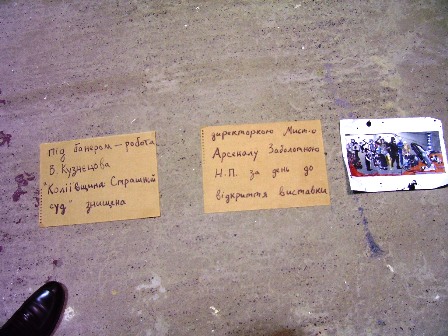 Під банером — робота
В. Кузнєцова
"Коліївщина: Страшний
суд" знищена
директоркою Мист-о
Арсеналу Заболотною
Н.П. за день до
відкриття виставки